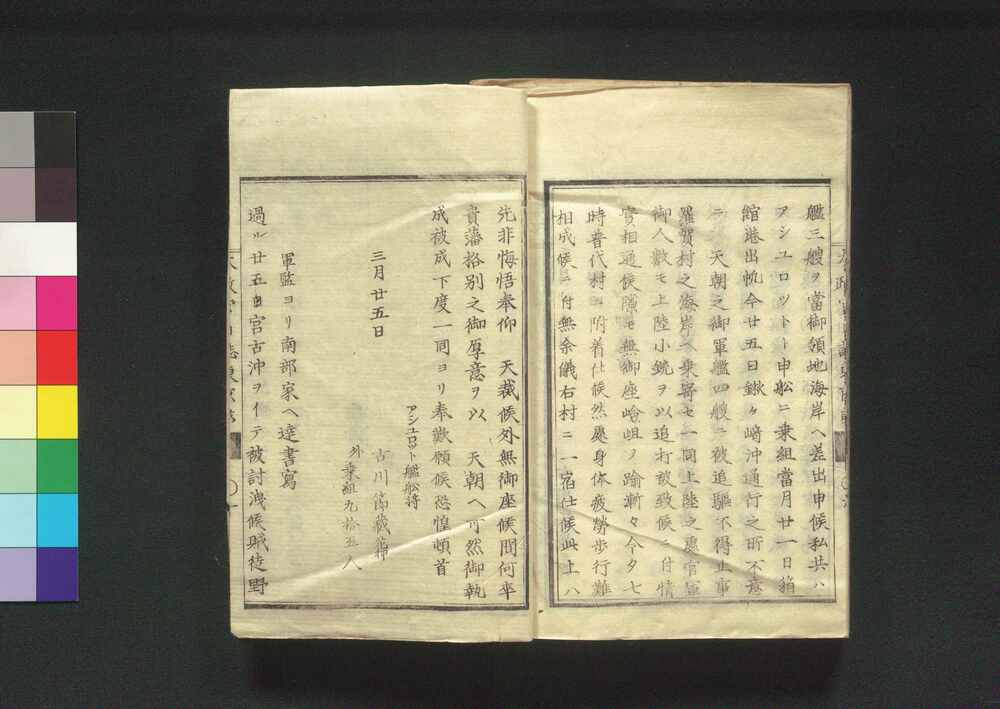 艦三艘ヲ當御領地海岸ヘ差出申候私共ハ
アシユロツトト申舩ニ乗組當月廿一日箱
館港出帆今廿五日鍬ケ﨑沖通行之所不意
ニ　天朝之御軍艦四艘ニ被追駆不得止事
羅賀村之海岸ヘ乗寄セ一同上陸之處官軍
御人数モ上陸小銃ヲ以追打被致候ニ付情
實相通候隙モ無御座嶮岨ノ踰漸々今夕七
時普代村ニ附着仕候然處身体疲勞歩行難
相成候ニ付無余儀右村ニ一宿仕候此上ハ
先非悔悟奉仰　天裁候外無御座候間何卒
貴藩格別之御厚意ヲ以　天朝ヘ可然御執
成被成下度一同ヨリ奉歎願候恐惶頓首
アシユロツト艦舩将
三月廿五日
古川節藏
外乗組九拾五人
軍監ヨリ南部家ヘ達書寫
過ル廿五日宮古沖ヲイテ被討洩候賊徒野